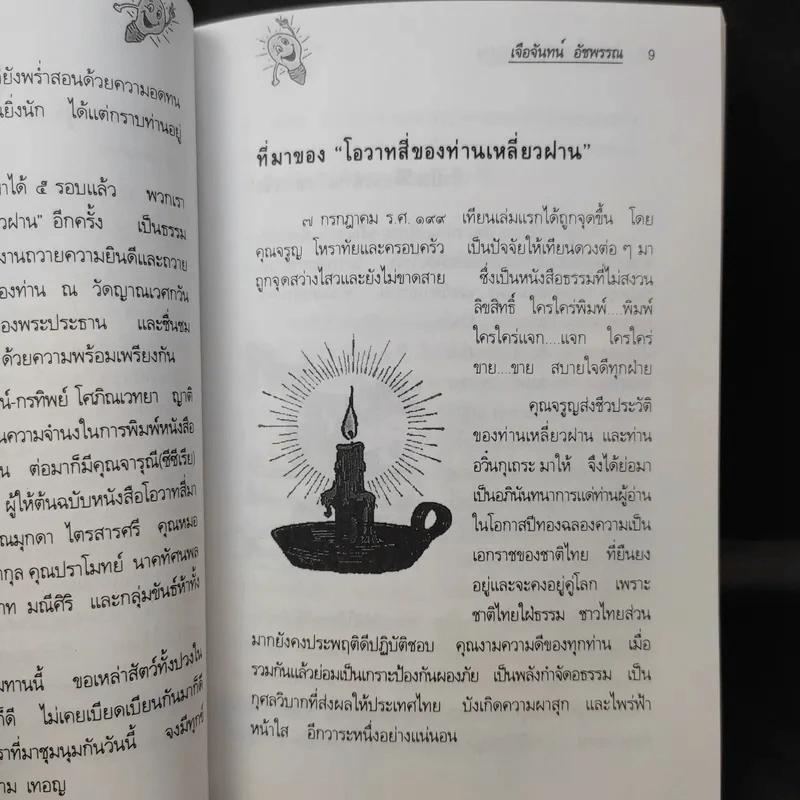 ยังพร่ำสอนด้วยความอดทน
ยิ่งนัก ได้แต่กราบท่านอยู่
าได้ ๕ รอบแล้ว พวกเรา
วฝาน" อีกครั้ง เป็นธรรม
งานถวายความยินดีและถวาย
องท่าน ณ วัดญาณเวศกวัน
องพระประธาน และชื่นชม
ด้วยความพร้อมเพรียงกัน
น์-กรทิพย์ โศภิณเวทยา ญาติ
นความจำนงในการพิมพ์หนังสือ
น ต่อมาก็มีคุณจารุณี(ซีซีเรีย)
ผู้ให้ต้นฉบับหนังสือโอวาทสี่มา
ณมุกดา ไตรสารศรี คุณหมอ
ากุล คุณปราโมทย์ นาคทัศนพล
าท มณีศิริ และกลุ่มขันธ์ห้าทั้ง
มทานนี้ ขอเหล่าสัตว์ทั้งปวงใน
ก็ดี ไม่เคยเบียดเบียนกันมาก็ดี
ราที่มาชุมนุมกันวันนี้ จงมีทุกข์
าม เทอญ
เจือจันทน์ อัชพรรณ 9
ที่มาของ "โอวาทสี่ของท่านเหลี่ยวฝาน"
๗ กรกฎาคม ร.ศ. ๑๙๙ เทียนเล่มแรกได้ถูกจุดขึ้น โดย
คุณจรูญ โหราทัยและครอบครัว เป็นปัจจัยให้เทียนดวงต่อ ๆ มา
ถูกจุดสว่างไสวและยังไม่ขาดสาย ซึ่งเป็นหนังสือธรรมที่ไม่สงวน
ลิขสิทธิ์ ใครใคร่พิมพ์....พิมพ์
ใครใคร่แจก....แจก ใครใคร่
ขาย....ขาย สบายใจดีทุกฝ่าย
คุณจรูญส่งชีวประวัติ
ของท่านเหลี่ยวฝาน และท่าน
อวิ๋นกุเถระ มาให้ จึงได้ย่อมา
เป็นอภินันทนาการแด่ท่านผู้อ่าน
ในโอกาสปีทองฉลองความเป็น
เอกราชของชาติไทย ที่ยืนยง
อยู่และจะคงอยู่คู่โลก เพราะ
ชาติไทยใฝ่ธรรม ชาวไทยส่วน
มากยังคงประพฤติดีปฏิบัติชอบ คุณงามความดีของทุกท่าน เมื่อ
รวมกันแล้วย่อมเป็นเกราะป้องกันผองภัย เป็นพลังกำจัดอธรรม เป็น
กุศลวิบากที่ส่งผลให้ประเทศไทย บังเกิดความผาสุก และไพร่ฟ้า
หน้าใส อีกวาระหนึ่งอย่างแน่นอน